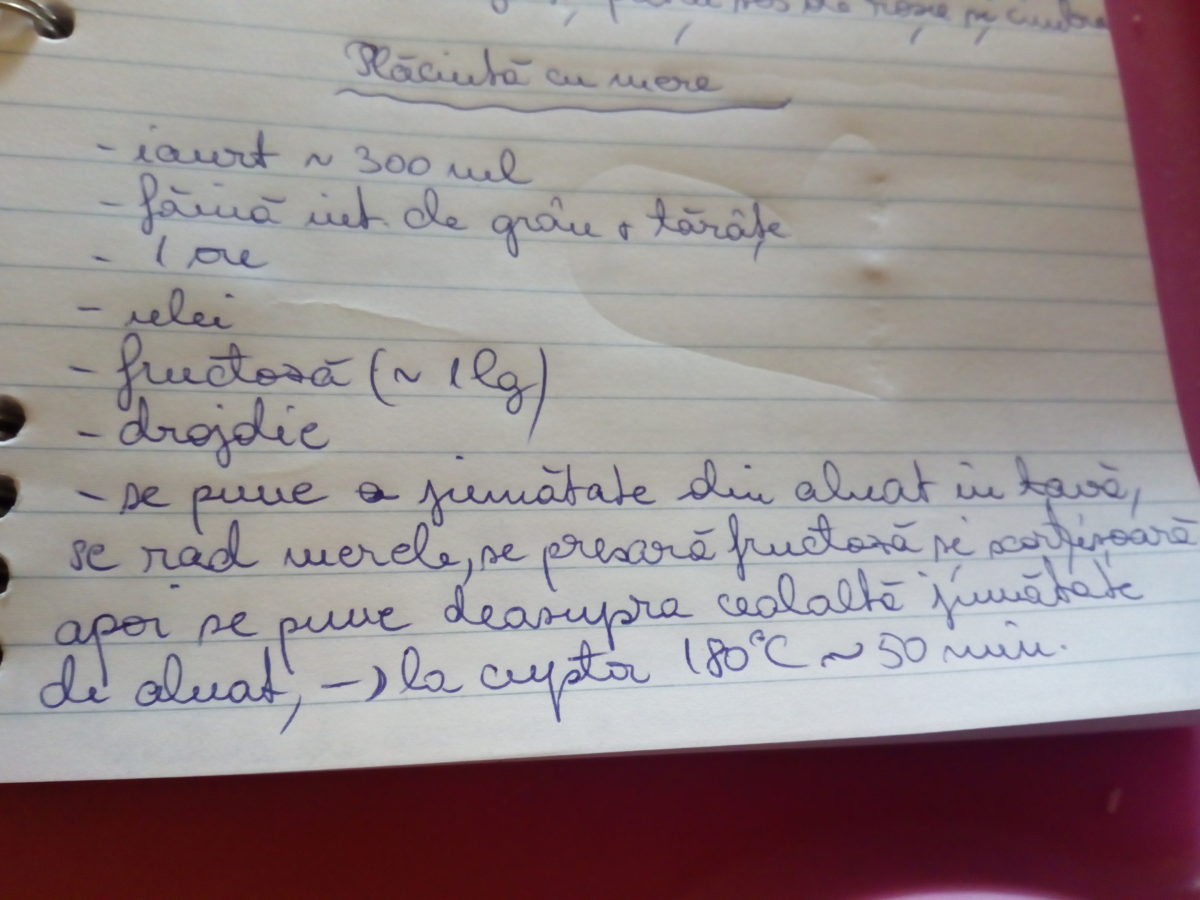 sos de roșii și cimbru
Plăcintă cu mere
- iaurt ~ 300 ml
- făină int. de grâu + tărâțe
- 1 ou
- ulei
- fructoză (~ 1 lg)
- drojdie
- se pune jumătate din aluat în tavă,
se rad merele, se presară fructoză și scorțișoară
apoi se pune deasupra cealaltă jumătate
de aluat, -> la cuptor 180°C ~ 50 min.